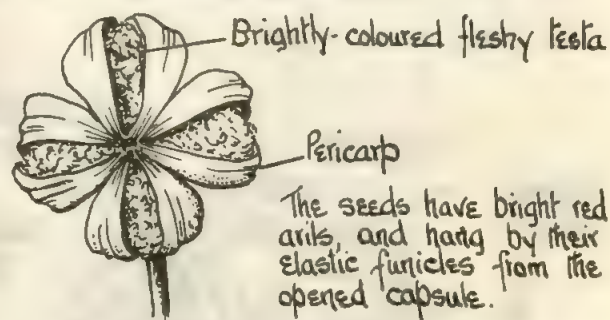 Brightly-coloured fleshy testa
Pericarp
The seeds have bright red
arils, and hang by their
elastic funicles from the
opened capsule.